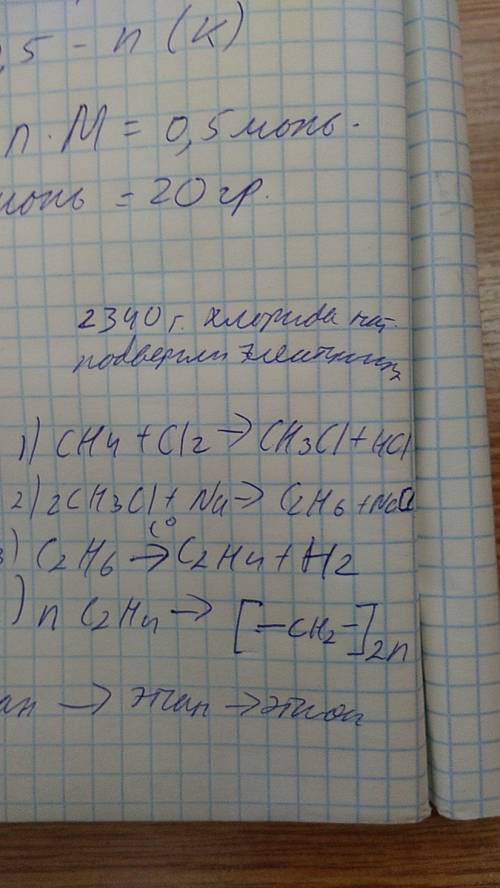 ,5 - n (K)
n · M = 0,5 моль ·
моль = 20 гр.
2340 г. хлорида нат.
подвергли
1) CH4 + Cl2 → CH3Cl + HCl
2) 2CH3Cl + Na → C2H6 + NaCl
3) C2H6 →t° C2H4 + H2
) n C2H4 → [-CH2-]2n
ан → этан →